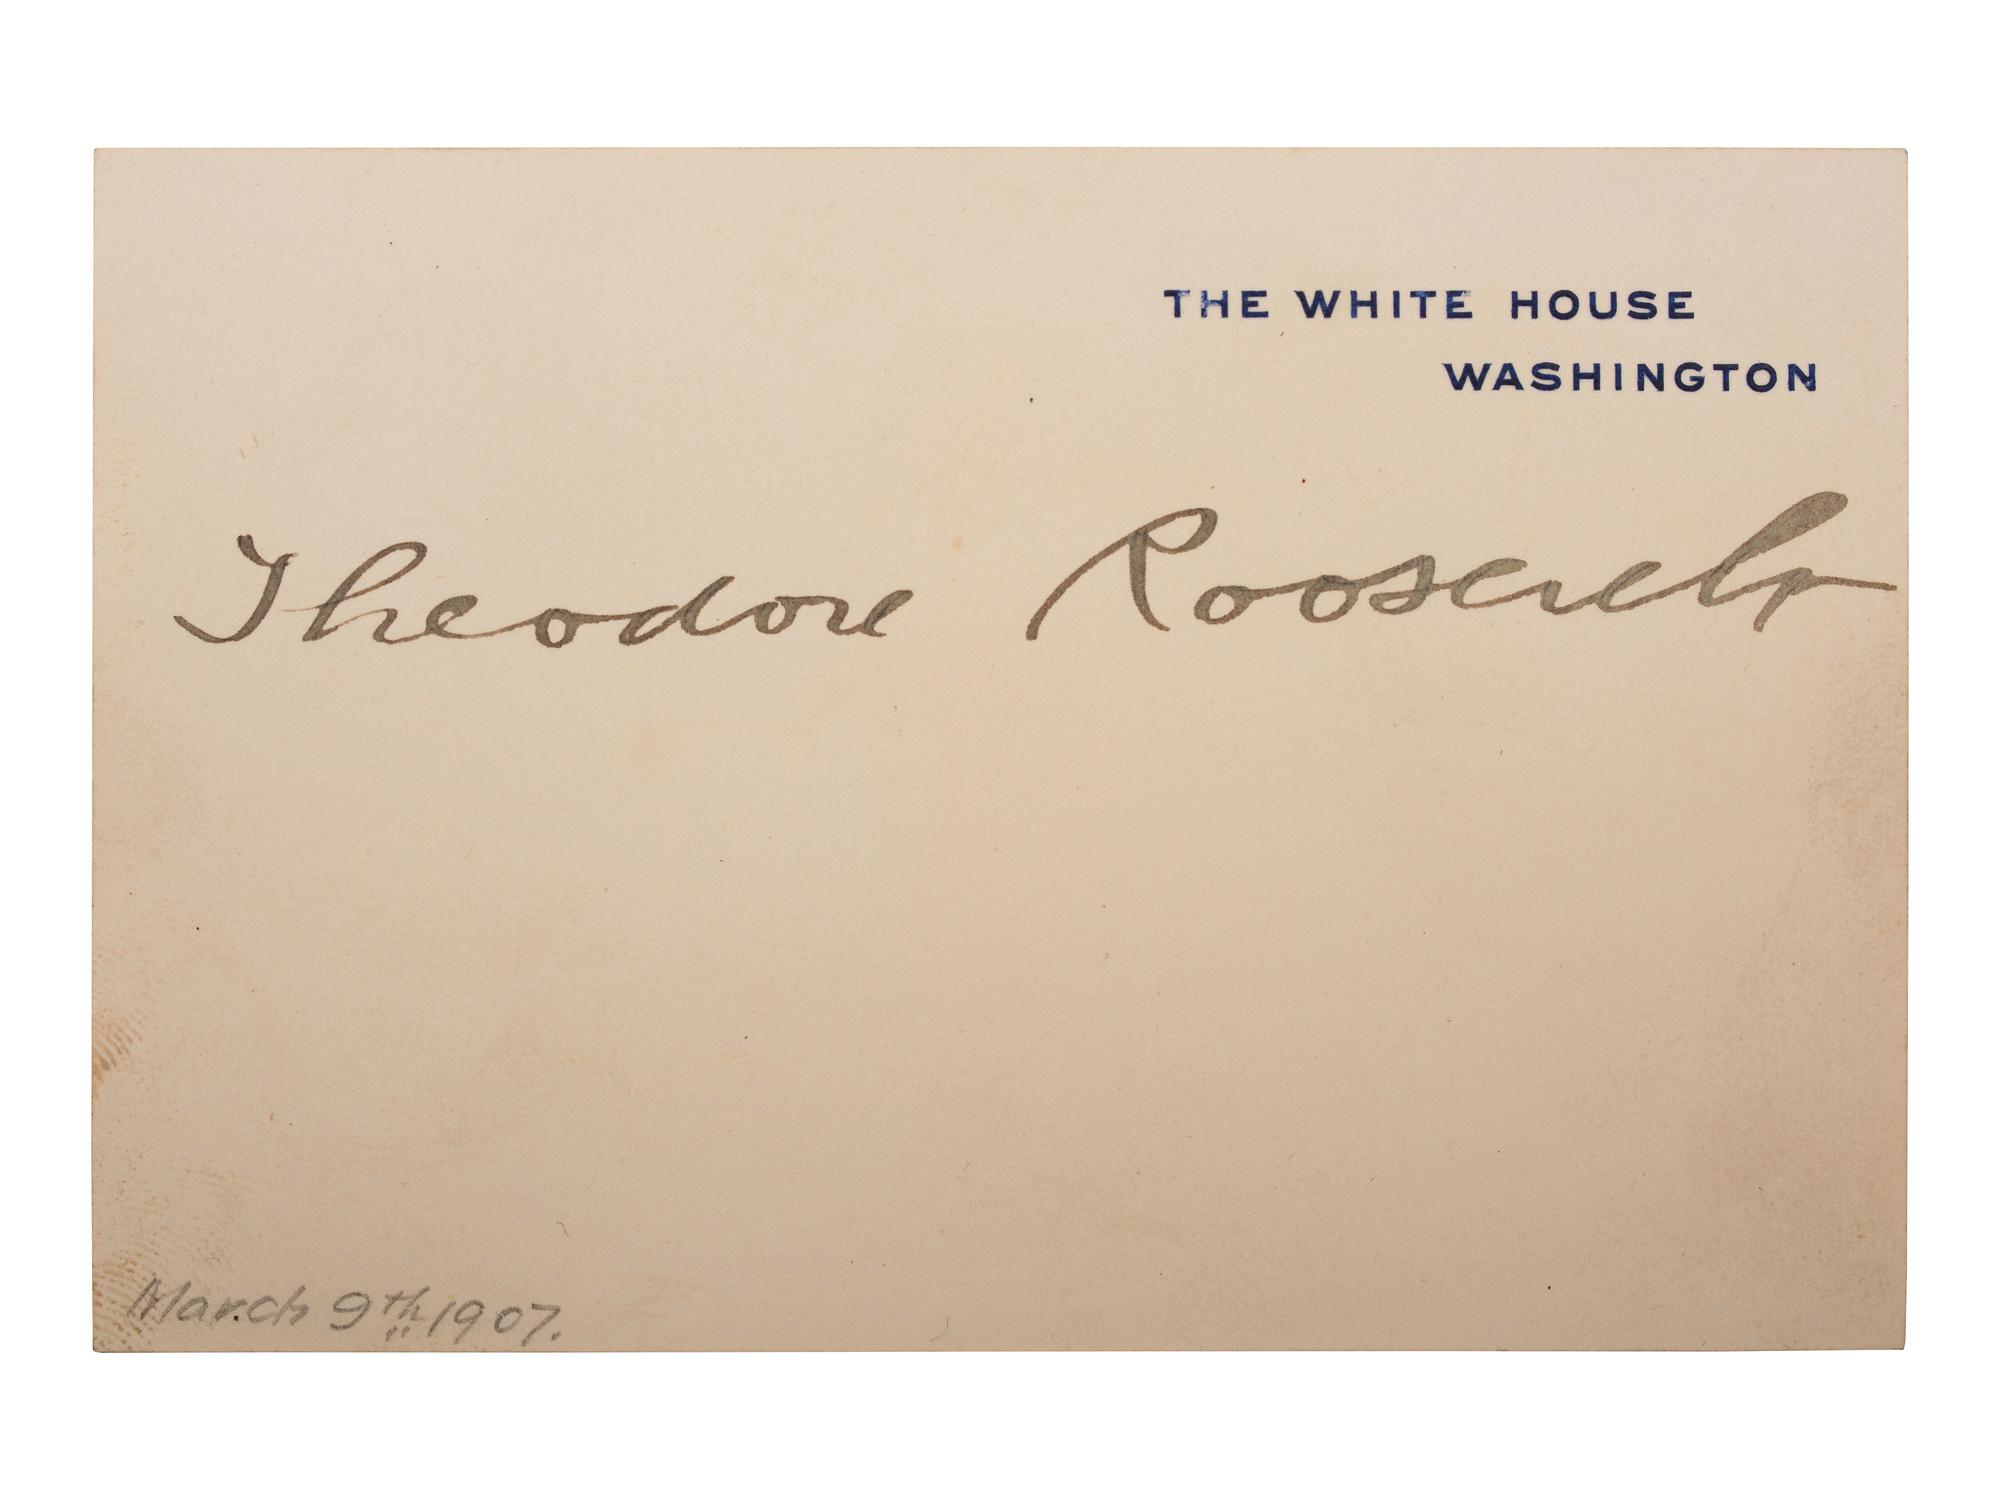 THE WHITE HOUSE
WASHINGTON
Theodore Roosevelt
March 9th 1907.